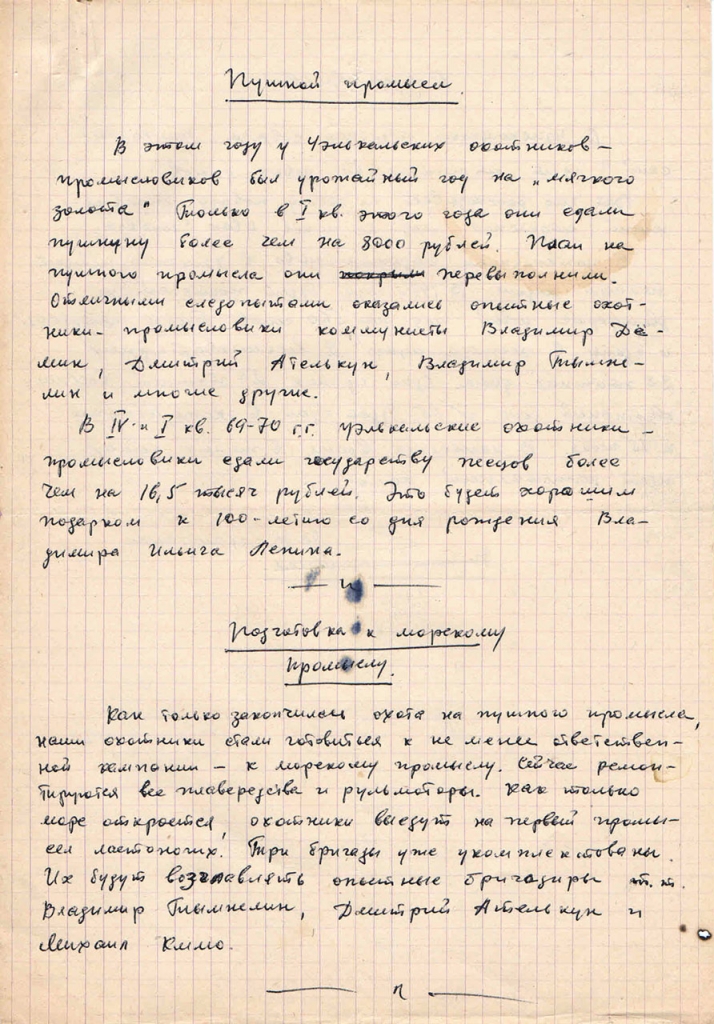 Пушной промысел.
В этом году у Уэлькальских охотников-
промысловиков был урожайный год на „мягкого
золота" Только в I кв. этого года они сдали
пушнину более чем на 8000 рублей. План на
пушного промысла они закрыли перевыполнили.
Отличными следопытами оказались опытные охот-
ники-промысловики коммунисты Владимир Дё-
мин, Дмитрий Ателькун, Владимир Тымне-
лин и многие другие.
В IV и I кв. 69-70 г.г. уэлькальские охотники-
промысловики сдали государству песцов более
чем на 16,5 тысяч рублей. Это будет хорошим
подарком к 100-летию со дня рождения Вла-
димира Ильича Ленина.
— " —
Подготовка к морскому
промыслу.
Как только закончилась охота на пушного промысла,
наши охотники стали готовиться к не менее ответствен-
ной кампании – к морскому промыслу. Сейчас ремон-
тируются все плавсредства и рульмоторы. Как только
море откроется, охотники выедут на первый промы-
сел ластоногих. Три бригады уже укомплектованы.
Их будут возглавлять опытные бригадиры т.т.
Владимир Тымнелин, Дмитрий Ателькун и
Михаил Кимо.
— " —